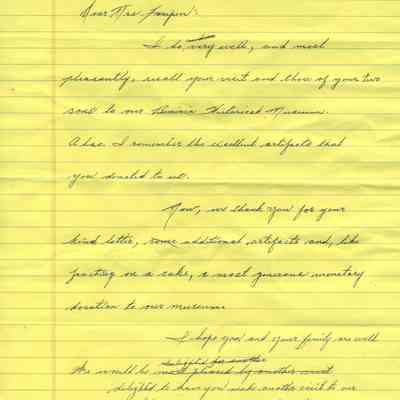 Dear Mrs.
I do, very well, and most
pleasantly, recall your visit and those of your two
sons to our Historical Museum.
Also I remember the excellent artifacts that
you donated to us.
Now, we thank you for your
kind letter, some additional artifacts and, like
frosting on a cake, a most generous monetary
donation to our museum.
I hope you and your family are well
delighted for another
We would be most pleased by another visit
delighted to have you make another visit to our